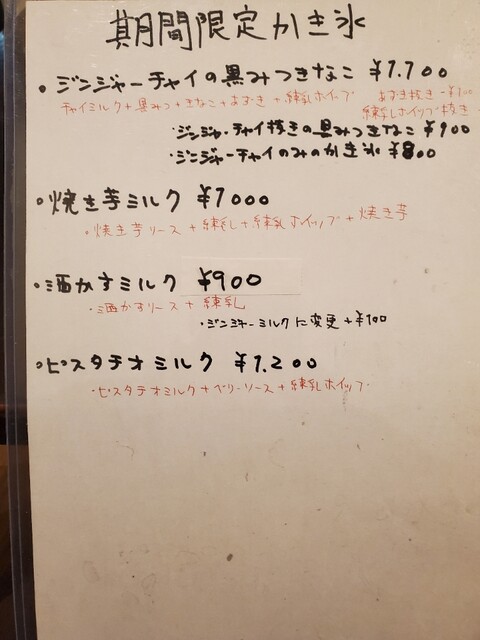 期間限定かき氷
・ジンジャーチャイの黒みつきなこ ¥1.100
チャイミルク+黒みつ+きなこ+あずき+練乳ホイップ あずき抜き -¥100
練乳ホイップ抜き -
・ジンジャーチャイ抜きの黒みつきなこ ¥900
・ジンジャーチャイのみのかき氷 ¥800
・焼き芋ミルク ¥1000
・焼き芋ソース+練乳+練乳ホイップ+焼き芋
・酒かすミルク ¥900
・酒かすソース+練乳
・ジンジャーミルクに変更+¥100
・ピスタチオミルク ¥1.200
・ピスタチオミルク+ベリーソース+練乳ホイップ